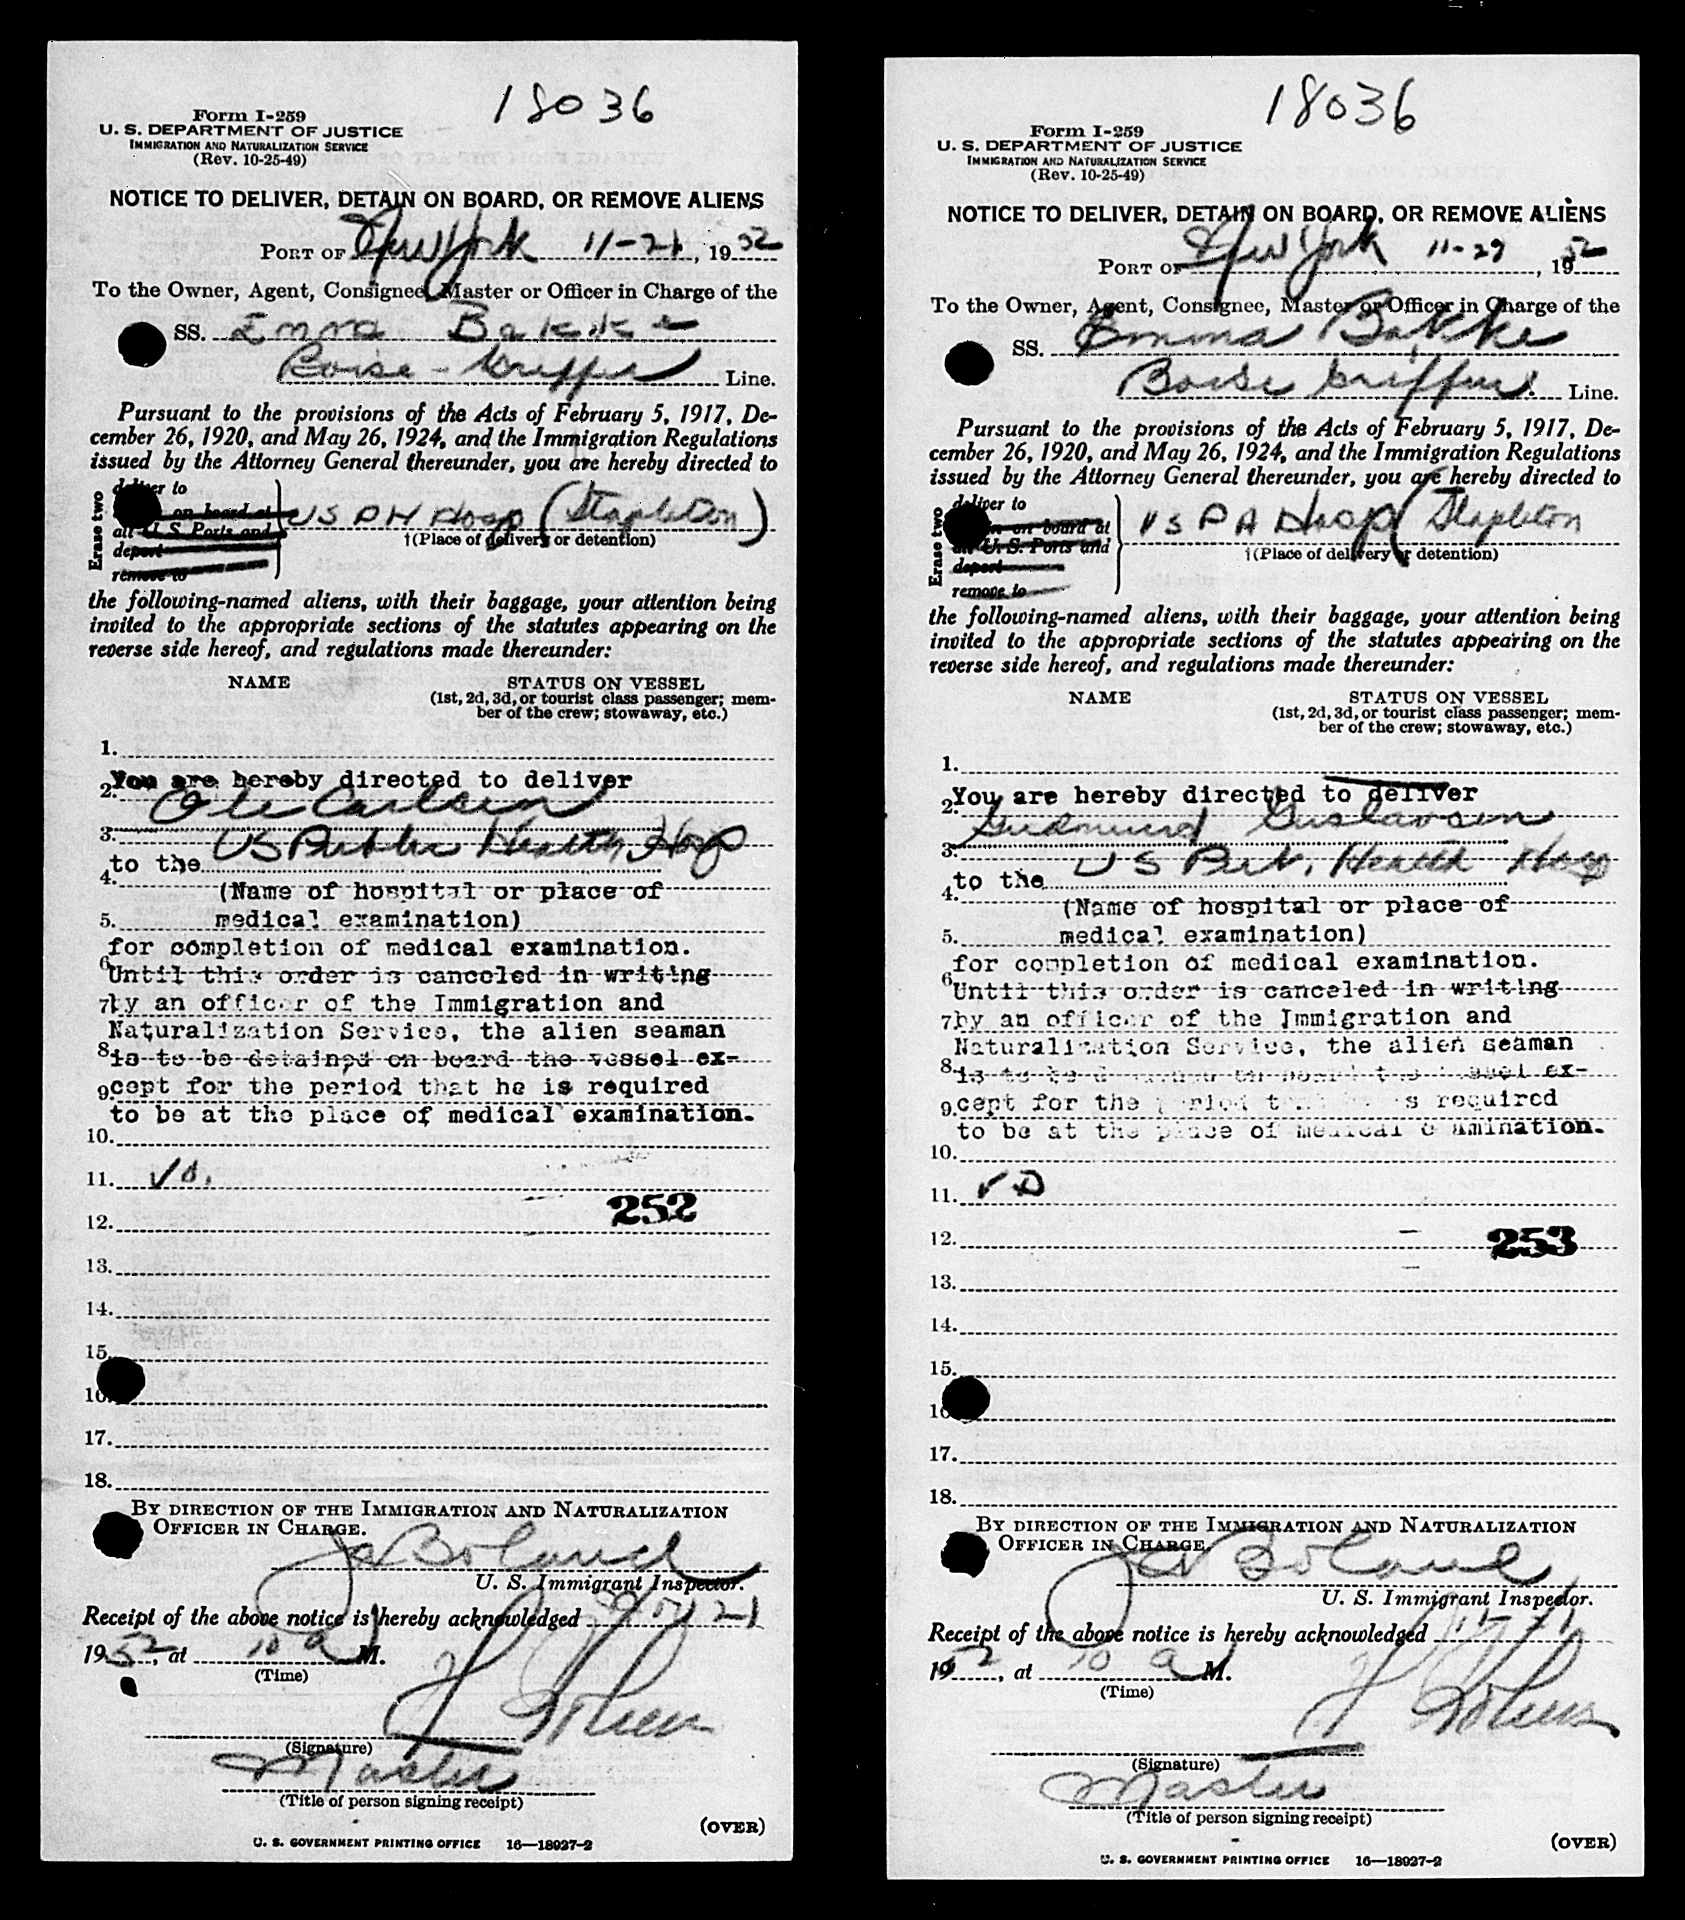 18036
Form I-259
U. S. DEPARTMENT OF JUSTICE
IMMIGRATION AND NATURALIZATION SERVICE
(Rev. 10-25-49)
NOTICE TO DELIVER, DETAIN ON BOARD, OR REMOVE ALIENS
PORT OF New York 11-21, 1952
To the Owner, Agent, Consignee, Master or Officer in Charge of the
SS. Emma Bakke
Boise-Griffin Line.
Pursuant to the provisions of the Acts of February 5, 1917, De-
cember 26, 1920, and May 26, 1924, and the Immigration Regulations
issued by the Attorney General thereunder, you are hereby directed to
Erase two
deliver to
on board at
all U. S. Ports and
deport
remove to
US P H Hosp (Stapleton)
†(Place of delivery or detention)
the following-named aliens, with their baggage, your attention being
invited to the appropriate sections of the statutes appearing on the
reverse side hereof, and regulations made thereunder:
NAME STATUS ON VESSEL
(1st, 2d, 3d, or tourist class passenger; mem-
ber of the crew; stowaway, etc.)
1.
You are hereby directed to deliver
2. Ole Carlsen
3. US Public Health Hosp
to the
4. (Name of hospital or place of
5. medical examination)
for completion of medical examination.
6. Until this order is canceled in writing
7. by an officer of the Immigration and
Naturalization Service, the alien seaman
8. is to be detained on board the vessel ex-
9. cept for the period that he is required
to be at the place of medical examination.
10.
11. VD.
252
12.
13.
14.
15.
16.
17.
18.
BY DIRECTION OF THE IMMIGRATION AND NATURALIZATION
OFFICER IN CHARGE.
Boland
U. S. Immigrant Inspector.
Receipt of the above notice is hereby acknowledged 21
1952, at 10 a M.
(Time)
(Signature)
Master
(Title of person signing receipt)
(OVER)
U. S. GOVERNMENT PRINTING OFFICE 16—18927-2
18036
Form I-259
U. S. DEPARTMENT OF JUSTICE
IMMIGRATION AND NATURALIZATION SERVICE
(Rev. 10-25-49)
NOTICE TO DELIVER, DETAIN ON BOARD, OR REMOVE ALIENS
PORT OF New York 11-29, 1952
To the Owner, Agent, Consignee, Master or Officer in Charge of the
SS. Emma Bakke
Boise Griffin Line.
Pursuant to the provisions of the Acts of February 5, 1917, De-
cember 26, 1920, and May 26, 1924, and the Immigration Regulations
issued by the Attorney General thereunder, you are hereby directed to
Erase two
deliver to
on board at
all U. S. Ports and
deport
remove to
US P H Hosp (Stapleton
†(Place of delivery or detention)
the following-named aliens, with their baggage, your attention being
invited to the appropriate sections of the statutes appearing on the
reverse side hereof, and regulations made thereunder:
NAME STATUS ON VESSEL
(1st, 2d, 3d, or tourist class passenger; mem-
ber of the crew; stowaway, etc.)
1.
You are hereby directed to deliver
2. Gudmund Gustavsen
3. US Pub. Health Hosp
to the
4. (Name of hospital or place of
5. medical examination)
for completion of medical examination.
6. Until this order is canceled in writing
7. by an officer of the Immigration and
Naturalization Service, the alien seaman
8. is to be detained on board the vessel ex-
9. cept for the period that he is required
to be at the place of medical examination.
10.
11. VD
12. 253
13.
14.
15.
16.
17.
18.
BY DIRECTION OF THE IMMIGRATION AND NATURALIZATION
OFFICER IN CHARGE.
Boland
U. S. Immigrant Inspector.
Receipt of the above notice is hereby acknowledged
1952, at 10 a M.
(Time)
(Signature)
Master
(Title of person signing receipt)
(OVER)
U. S. GOVERNMENT PRINTING OFFICE 16—18927-2